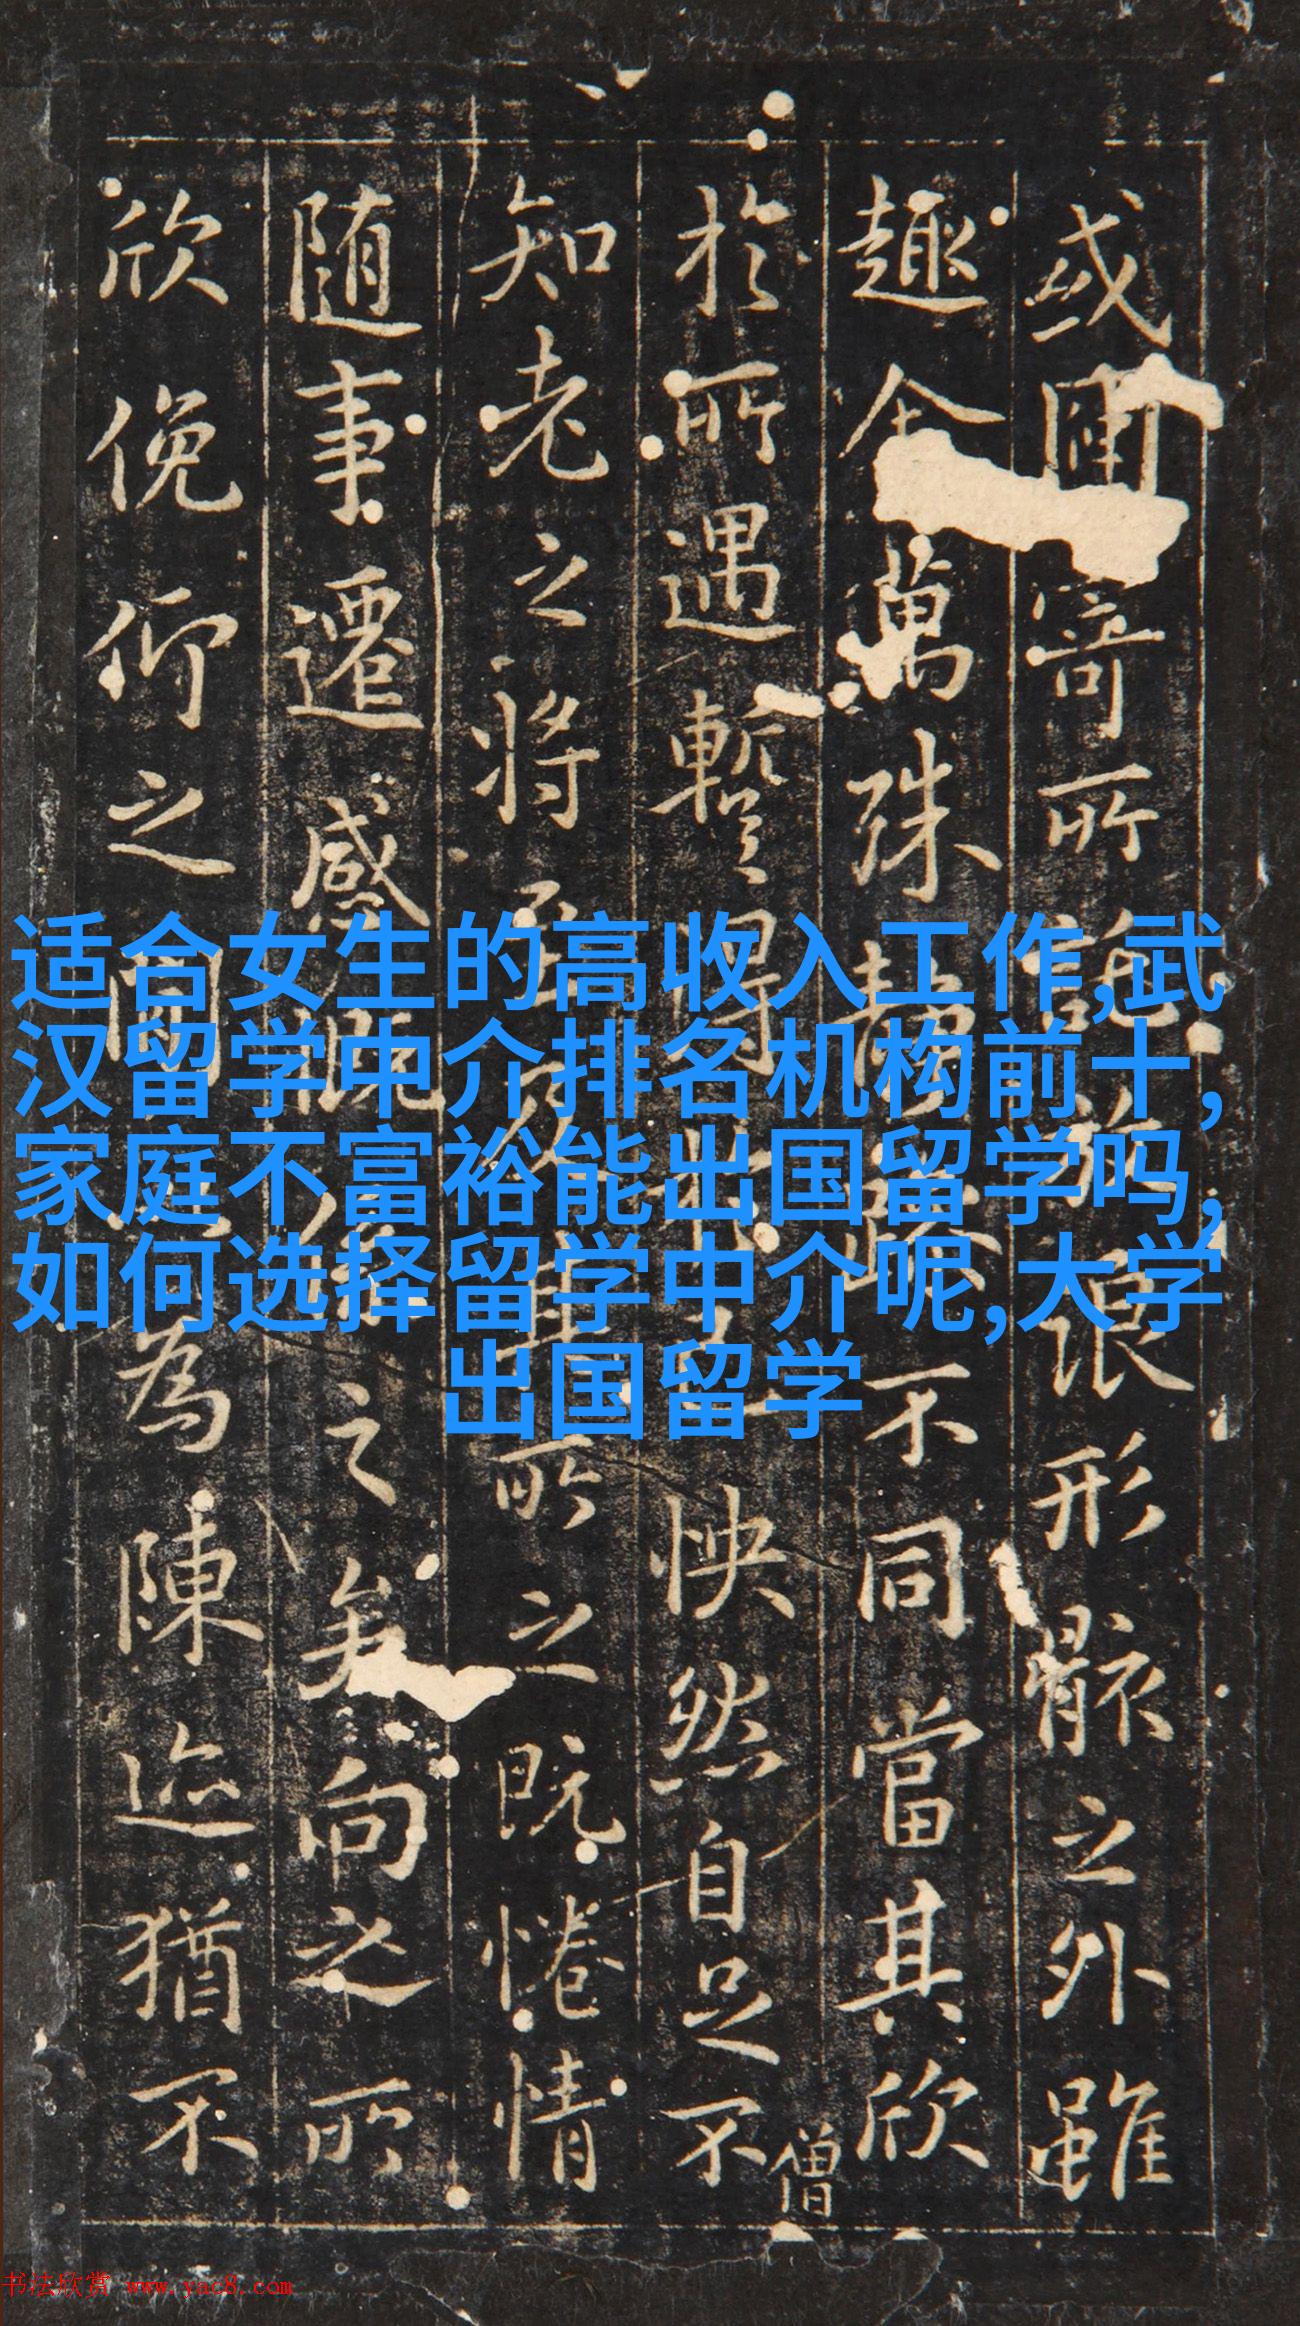 或因寄所託放浪形骸之外雖
趣舍萬殊靜躁不同當其欣
於所遇暫得於己怏然自足不
僧
知老之將至及其所之既惓情
随事遷感慨係之矣向之所
欣俛仰之間以為陳迹猶不
适合女生的高收入工作,武
汉留学中介排名机构前十,
家庭不富裕能出国留学吗,
如何选择留学中介呢,大学
出国留学
书法欣赏 www.yac8.com